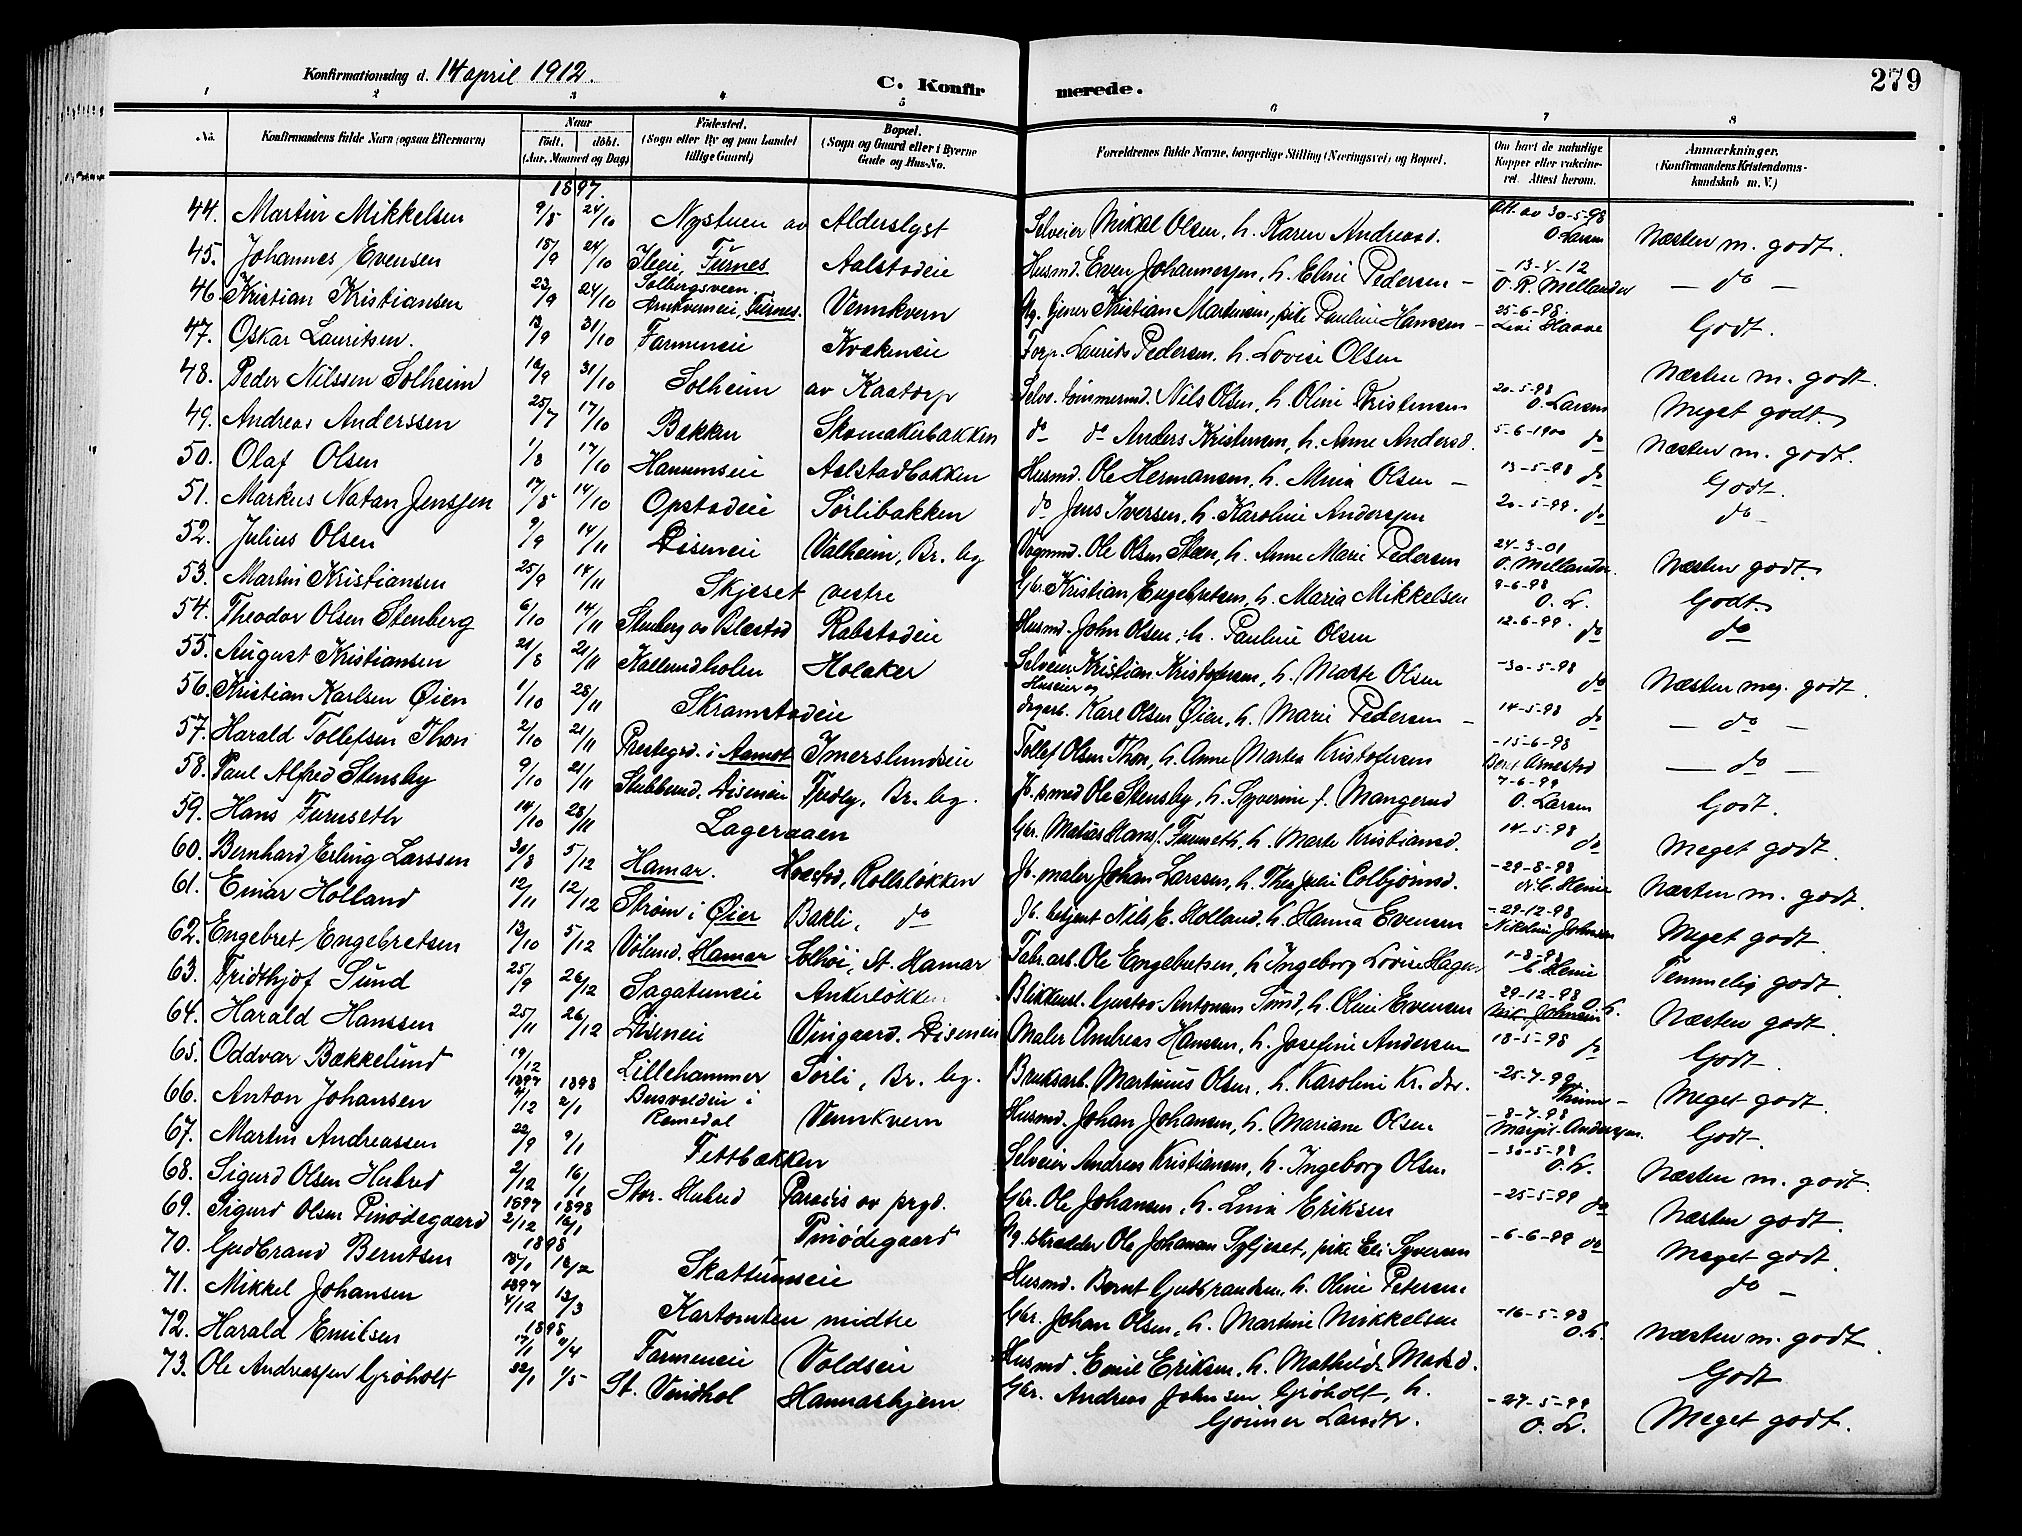 Konfirmationsdag d. 14 april 1912.
C. Konfirmerede.
279
1 2 3 4 5 6 7 8
No. Konfirmandens fulde Navn (ogsaa Efternavn) Naar født, døbt. (Aar, Maaned og Dag) Fødested. (Sogn eller By og paa Landet tillige Gaard) Bopæl. (Sogn og Gaard eller i Byerne Gade og Hus-No. Forældrenes fulde Navne, borgerlige Stilling (Næringsvei) og Bopæl. Om havt de naturlige Kopper eller vakcineret. Attest herom. Anmærkninger. (Konfirmandens Kristendomskundskab m. V.)
1897.
44. Martin Mikkelsen 9/8 24/10 Nystuen av Alderslyst Selveier Mikkel Olsen, h. Karen Andreasd. Att. av 30-5-98 O. Larsen Næsten m. godt.
45. Johannes Evensen 15/9 24/10 Ileie, Furnes Aalstadeie Husmd. Even Johannessen, h. Eline Pedersen - 13-4-12 O. R. Mellander - do -
46. Kristian Kristiansen 23/9 24/10 Solbergsveen. Arnkverneie, Furnes. Vennkvern Ug. Kristian Martinsen, pike Pauline Hanssen - 25-6-98. Godt.
47. Oskar Lauritsen. 13/9 31/10 Farmeneie Kvækeneie Forp. Laurits Pedersen, h. Lovise Olsen Næsten m. godt.
48. Peder Nilssen Solheim 16/9 31/10 Solheim av Kaatorp Selve. tømmermd. Nils Olsen, h. Oline Kristensen 20-5-98 O. Larsen Meget godt.
49. Andreas Anderssen 25/7 17/10 Bakken Skomakerbakken do do Anders Kristensen, h. Anne Andersd. 5-6-1900 do Næsten m. godt.
50. Olaf Olsen 1/8 17/10 Hanumseie Aalstadbakken Husmd. Ole Hermansen, h. Mina Olsen - 13-5-98 do Godt.
51. Markus Natan Jenssen 17/8 14/10 Opstadeie Sørlibakken do Jens Iversen, h. Karoline Anderssen 20-5-99. do do -
52. Julius Olsen 9/9 14/11 Diseneie Valheim, Br. leg Vognmd. Ole Olsen Støen, h. Anne Marie Pedersen 24-3-01 O. Mellander. Næsten godt.
53. Martin Kristiansen 25/9 14/11 Skjeset vestre Gbr. Kristian Engebretsen, h. Maria Mikkelsen 9-6-98 O. L. Godt.
54. Theodor Olsen Stenberg 6/10 14/11 Stenberg av Blæstad Rabstadeie Husmd. John Olsen, h. Pauline Olsen 12-6-99. do do
55. August Kristiansen 21/8 21/11 Kallerudholen Holaker Selveier Kristian Kristofersen, h. Marte Olsen -30-5-98 do Næsten meg. godt.
56. Kristian Karlsen Øien 1/10 28/11 Skramstadeie Huseier og dagarb. Karl Olsen Øien, h. Marie Pedersen - 14-5-98 do - do -
57. Harald Tollefsen Thon 2/10 21/11 Prestegrd. i Aamot Imerslundseie Tollef Olsen Thon, h. Anne Martea Kristofersen -15-6-98 Bernt Arnestad - do -
58. Paul Alfred Stensby 9/10 21/11 Stubberud. Diseneie Fredly, Br. leg. Jb. smed Ole Stensby, h. Syverine f. Mangerud 7-6-99 O. Larsen Godt.
59. Hans Furuseth 14/10 28/11 Lageraaen Gbr. Matias Hans f. Furuseth, h. Marte Kristiansd. 14-5-98 do Meget godt.
60. Bernhard Erling Larssen 30/8 5/12 Hamar. Hvastad, Rollsløkken Jb. maler Johan Larssen, h. Thea Julie Colbjørnsd. -29-8-98 Næsten m. godt.
61. Einar Holland 12/11 12/12 Strøm i Øier Bakli, do Jb. betjent Nils E. Holland, h. Hanna Evensen -29-12-98 Nikoline Johnsen Meget godt.
62. Engebret Engebretsen 13/10 5/12 Vølund, Hamar Solhøi, St. Hamar Fabr.arb. Ole Engebretsen, h Ingeborg Lovise Hagen 1-8-98 Temmelig godt.
63. Fridthjof Sund 25/9 26/12 Sagatuneie Ankerløkken Blikkensl. Gustav Antonsen Sund, h. Oline Evensen 29-12-98 Næsten godt.
64. Harald Hanssen 25/11 26/12 Diseneie Vingaard. Diseneie Maler Andreas Hanssen, h. Josefine Andersen 18-5-98 do Godt.
65. Oddvar Bækkelund 19/12 Lillehammer Sørli, Br. leg. Bruksarb. Martinius Olsen, h. Karoline Kr. dtr. -25-7-99 Meget godt.
1897 1898
66. Anton Johansen 4/12 2/1 i Romedal Vennkvern Husmd. Johan Johansen, h. Mariane Olsen -8-7-98 Margit Anderssen. Godt.
67. Martin Andreassen 22/9 9/1 Fettbækken Selveier Andreas Kristiansen, h. Ingeborg Olsen - 30-5-98 O. L. Næsten m. godt.
68. Sigurd Olsen Hubred 2/12 16/1 Stor. Hubred Paradis av prgd. Gbr. Ole Johansen, h. Lina Eriksen -25-5-99 do Næsten godt.
1897 1898
69. Sigurd Olsen Pinødegaard 2/12 16/1 Pinødegaard Ug. skrædder Ole Johansen, pike Eli Syversen -6-6-99 do Meget godt.
1898
70. Gudbrand Berntsen 15/1 13/2 Skattumseie Husmd. Bernt Gudbrandsen, h. Oline Petersen do -
1897
71. Mikkel Johansen 4/12 13/3 Kartomten midtre Gbr. Johan Olsen, h. Martine Mikkelsen -16-5-98 O. L. Næsten m. godt.
1898
72. Harald Emilsen 17/1 4/4 Farmeneie Voldseie Husmd. Emil Eriksen, h. Mathilde Matsd. Godt
73. Ole Andreassen Grøholt 22/1 1/5 St. Vindhol Hannashjem Gbr. Andreas Johnsen Grøholt, h. -27-5-99 O. L. Meget godt.
Gunner Larsdtr.